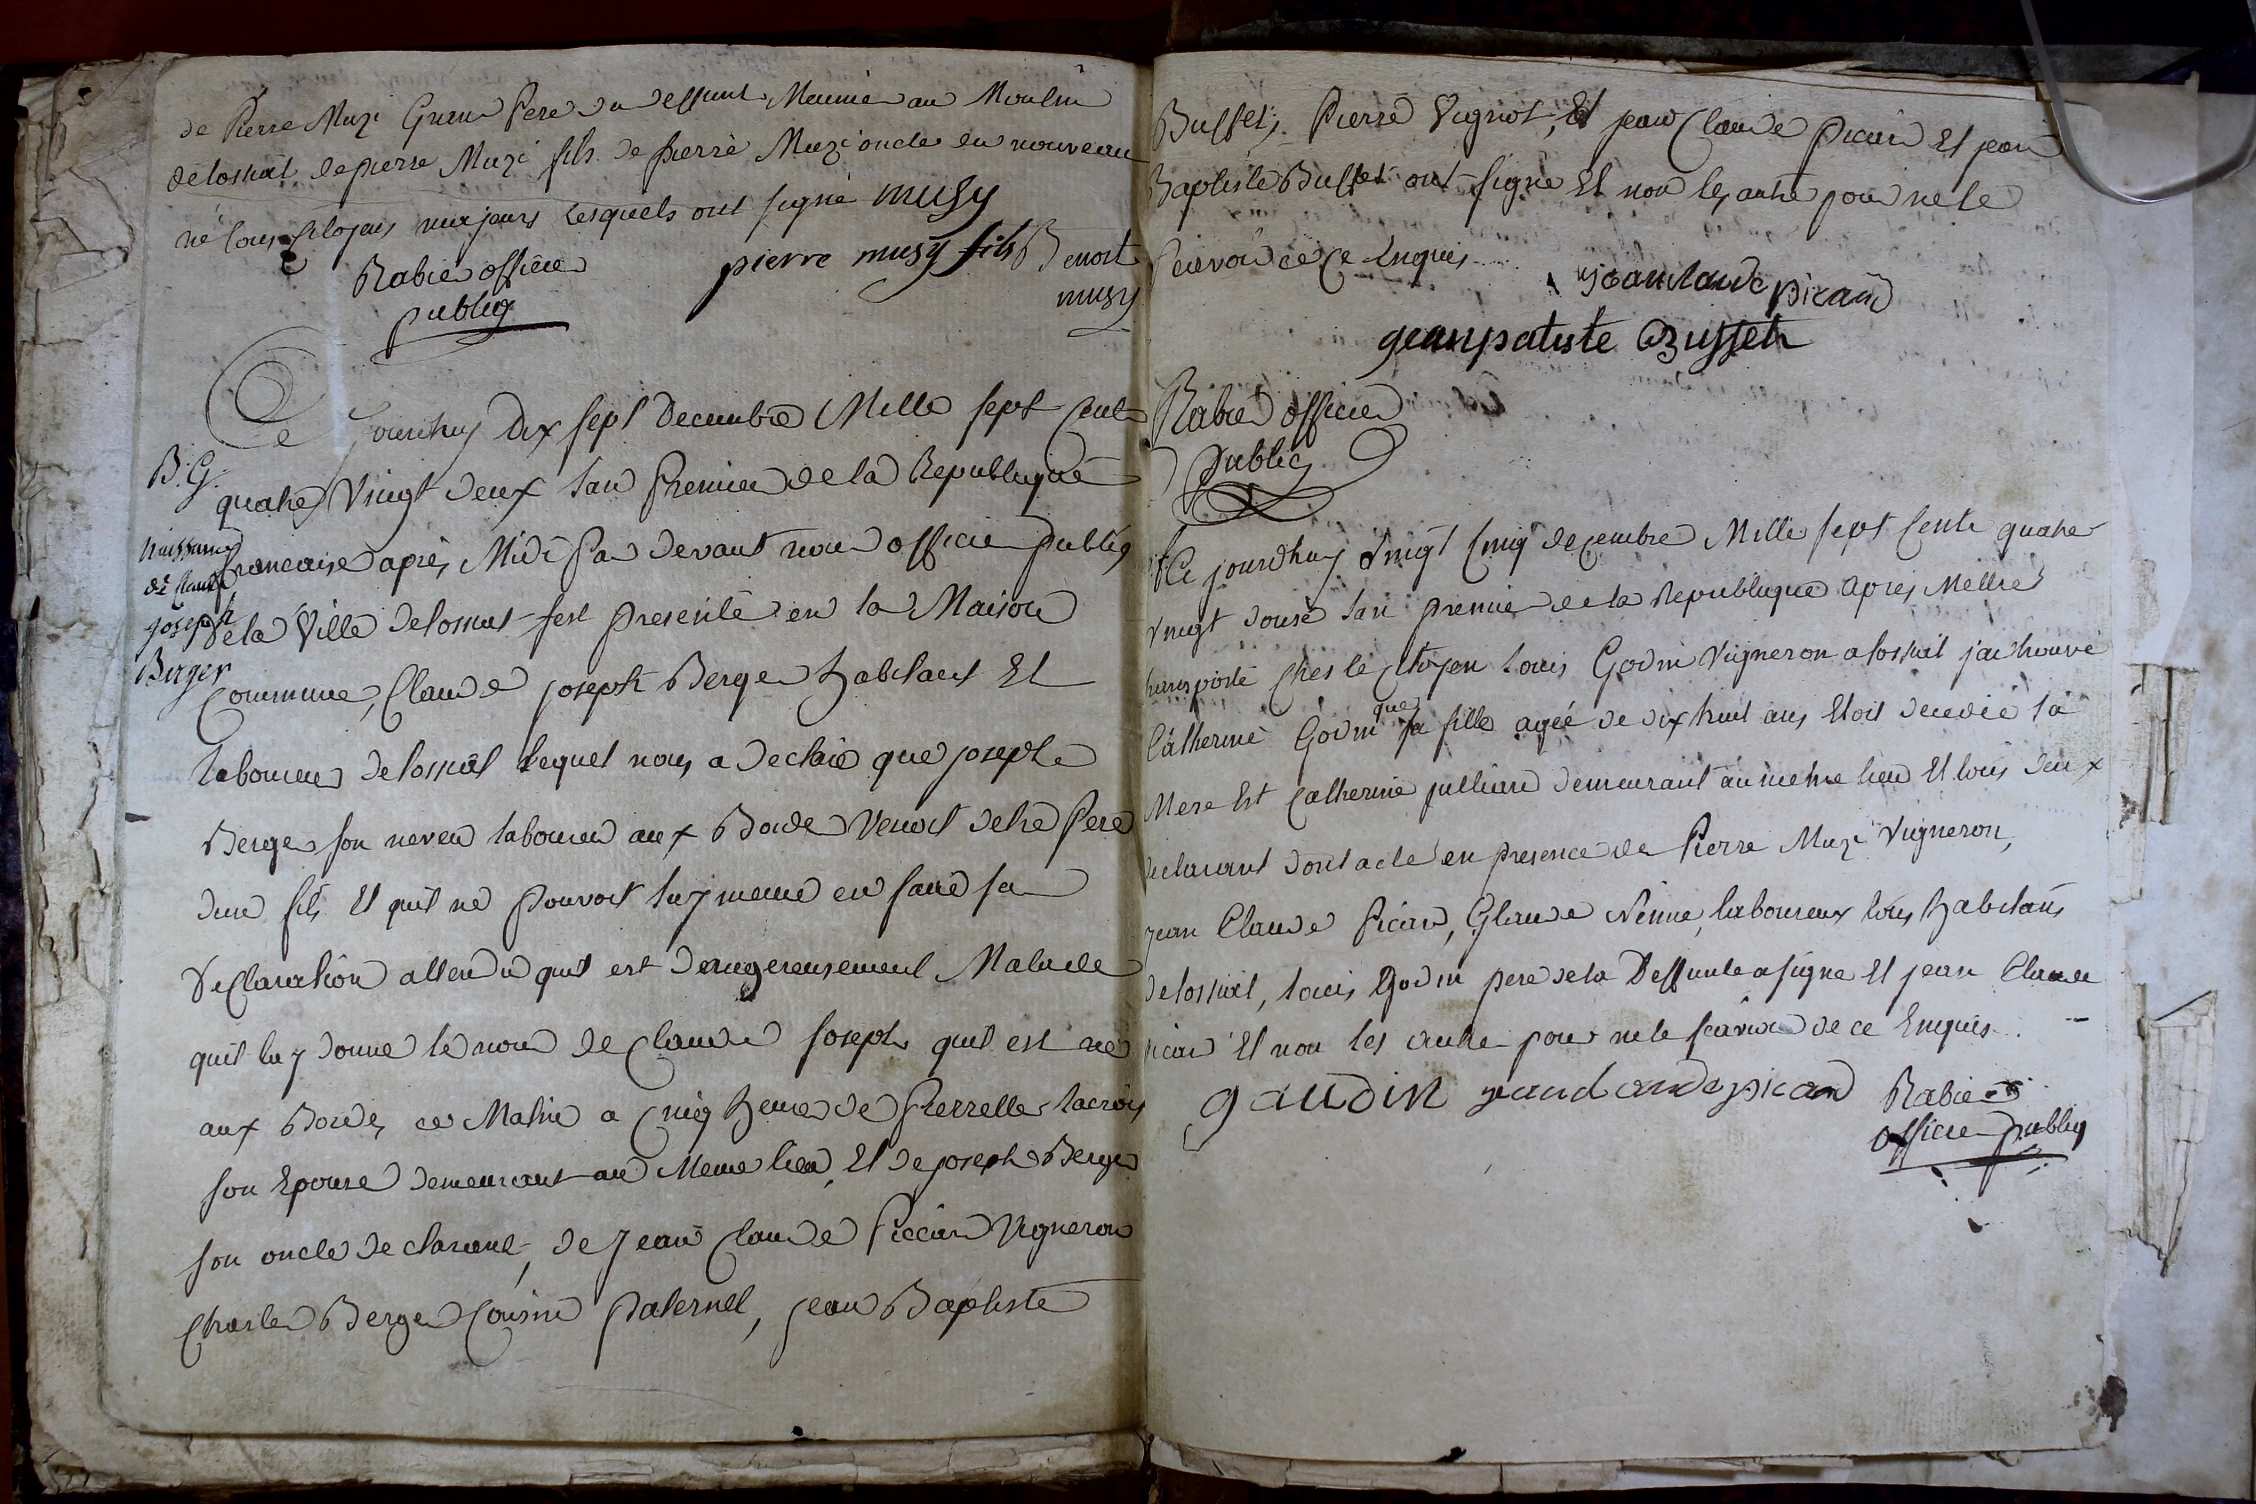 de Pierre Muzi Grand Pere du deffunt, Meunier au Moulin
de lossiat de pierre Muzi fils de pierre Muzi oncle du nouveau
né tous citoyens majeurs lesquels ont signé musy
pierre musy fils Benoit
musy
Rabier officier
publiq
Ce Jourdhuy Dix sept Decembre Mille sept Cent
B. G.
quatre Vingt deux lan Premier de la Republique
Naissance
de Claude
joseph
Berger
francaise après Midi Par devant nous officier publiq
de la Ville de lossiat sest presenté en la Maison
Commune, Claude joseph Berger habitant Et
Laboureur de lossiat Lequel nous a declaré que joseph
Berger son neveu laboureur aux Borde Venoit detre Pere
dun fils Et quil ne Pouvoit luy meme en faire sa
Declaration attendu quil est dangereusement Malade
quil luy donne le nom de Claude Joseph quil est né
aux Bordes ce Matin a Cinq heures de Pierrette lacroix
son Epouse demeurant au Meme lieu, Et de joseph Berger
son oncle declarant, de Jean Claude Piccard Vigneron
Charles Berger Cousin Paternel, jean Baptiste
Buffet, Pierre Vigniot, Et jean Claude picard Et jean
Baptiste Buffet ont signé Et non les autre pour ne le
scavoir de ce Enquis
jeanclaude picard
geanpatiste Buffet
Rabier officier
publiq
Ce jourdhuy Vingt Cinq decembre Mille sept Cents quatre
vingt douse lan premier de la Republique apres Mettre
transporté Ches le Citoyen Louis Godin Vigneron a lossiat jai trouvé
que
Catherine Godin sa fille agée de dix huit ans Etoit decedée sa
Mere Est Catherine julliard demeurant au meme lieu Et tous deux
declarant dont acte en presence de Pierre Muzi Vigneron,
jean Claude Picard, Glaude Nenne, laboureurs tous habitans
de lossiat, Louis Godin pere de la Deffunte a signé Et jean Claude
picard Et non les autre pour ne le scavoir de ce Enquis
gaudin jeanclaude picard Rabier
officier publiq